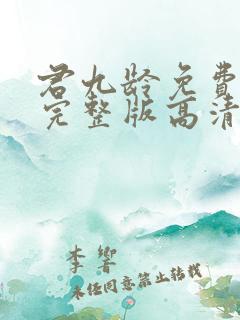 君九龄免費
完整版高清
李響
未经同意禁止转载